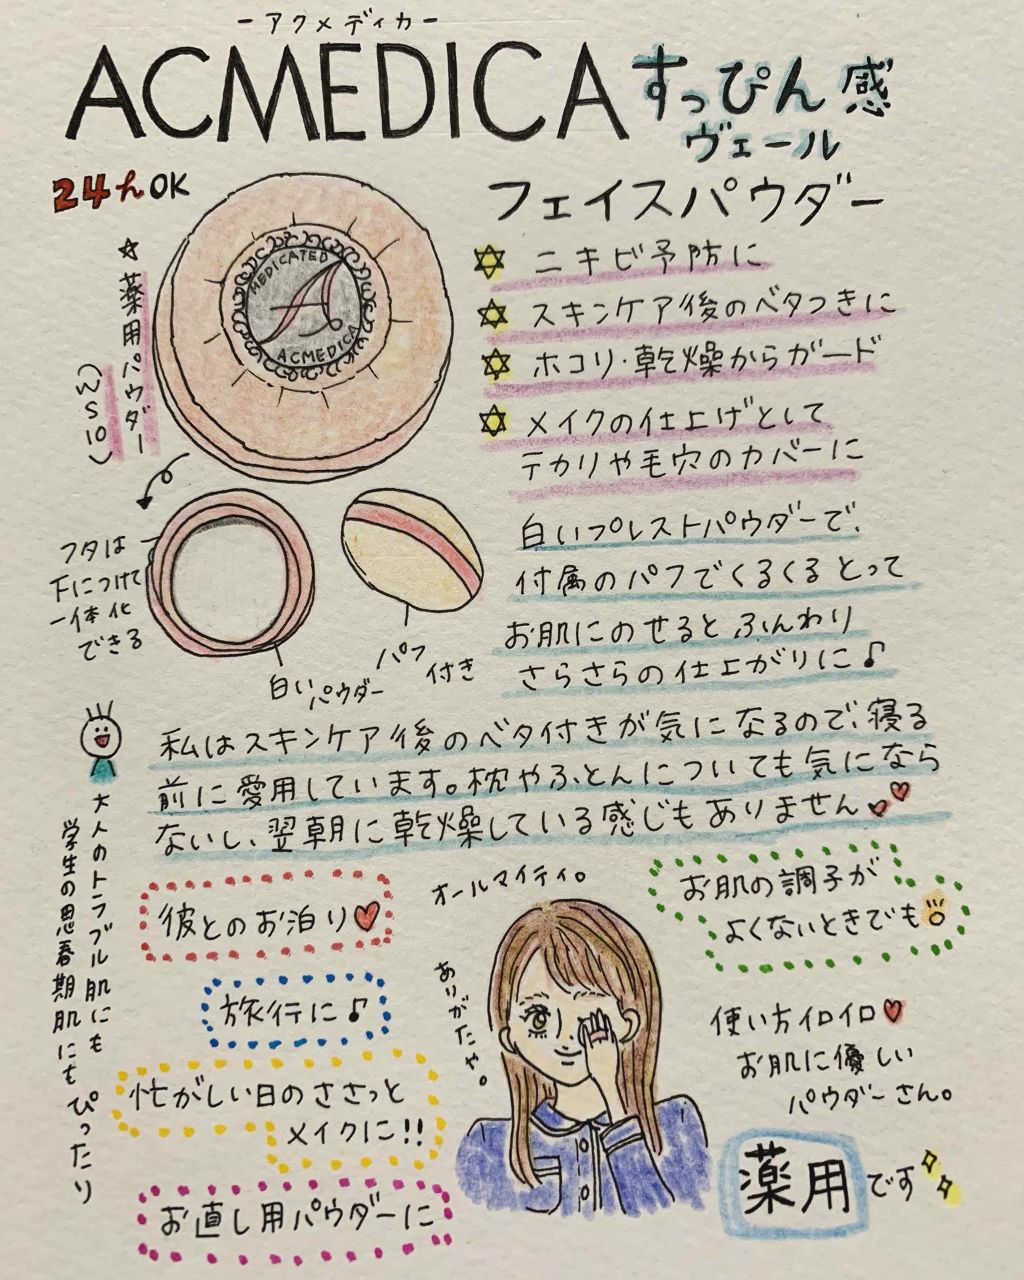 ーアクメディカー
ACMEDICA
すっぴん感
ヴェール
フェイスパウダー
24h OK
☆薬用パウダー
(WS10)
MEDICATED
A
ACMEDICA
ニキビ予防に
スキンケア後のベタつきに
ホコリ・乾燥からガード
メイクの仕上げとして
テカリや毛穴のカバーに
フタは
下につけて
一体化
できる
白い
パウダー
パフ
付き
白いプレストパウダーで、
付属のパフでくるくるとって
お肌にのせるとふんわり
さらさらの仕上がりに♪
私はスキンケア後のベタ付きが気になるので、寝る
前に愛用しています。枕やふとんについても気になら
ないし、翌朝に乾燥している感じもありません♥♥
大人のトラブル肌にも
学生の思春期肌にも ぴったり
彼とのお泊り♥
旅行に♪
忙がしい日のささっと
メイクに!!
お直し用パウダーに
オールマイティ。
ありがたや。
お肌の調子が
よくないときでも
使い方イロイロ♥
お肌に優しい
パウダーさん。
薬用です